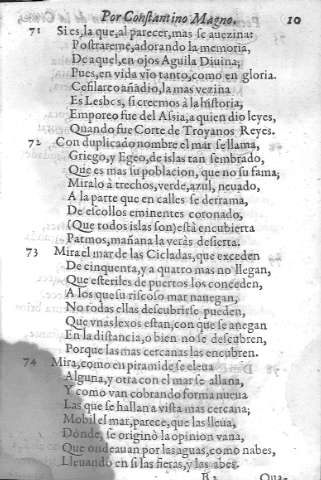 Por Constantino Magno. 10
71 Si es, la que, al parecer, mas se auezina:
Postrareme, adorando la memoria,
De aquel, en ojos Aguila Diuina;
Pues, en vida vio tanto, como en gloria.
Cesilarco añadio, la mas vezina
Es Lesbos, si creemos à la historia;
Emporeo fue del Assia, a quien dio leyes,
Quando fue Corte de Troyanos Reyes.
72 Con duplicado nombre el mar se llama,
Griego, y Egeo, de islas tan sembrado,
Que es mas su poblacion, que no su fama;
Miralo à trechos, verde, azul, neuado,
A la parte que en calles se derrama,
De escollos eminentes coronado,
(Que todos islas son) està encubierta
Patmos, mañana la veràs desierta.
73 Mira el mar de las Cicladas, que exceden
De cinquenta, y a quatro mas no llegan,
Que esteriles de puertos los conceden,
A los que su riscoso mar nauegan,
No todas ellas descubrirse pueden,
Que vnas lexos estan, con que se anegan
En la distancia, o bien no se descubren,
Porque las mas cercanas las encubren.
74 Mira, como en piramide se eleua
Alguna, y otra con el mar se allana,
Y como van cobrando forma nueua
Las que se hallan a vista mas cercana;
Mobil el mar, parece, que las lleua,
Donde, se originò la opinion vana,
Que ondeauan por las aguas, como nabes,
Lleuando en si las fieras, y las abes.
B2 Qua-